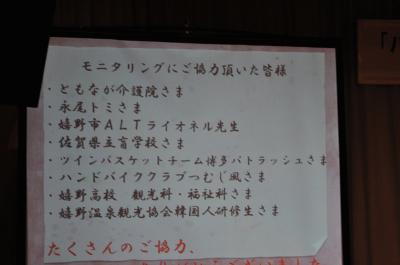 モニタリングにご協力頂いた皆様
・ともなが介護院さま
・永尾トミさま
・嬉野市ALTライオネル先生
・佐賀県立盲学校さま
・ツインバスケットチーム博多パトラッシュさま
・ハンドバイククラブつむじ風さま
・嬉野高校 観光科・福祉科さま
・嬉野温泉観光協会韓国人研修生さま
たくさんのご協力、